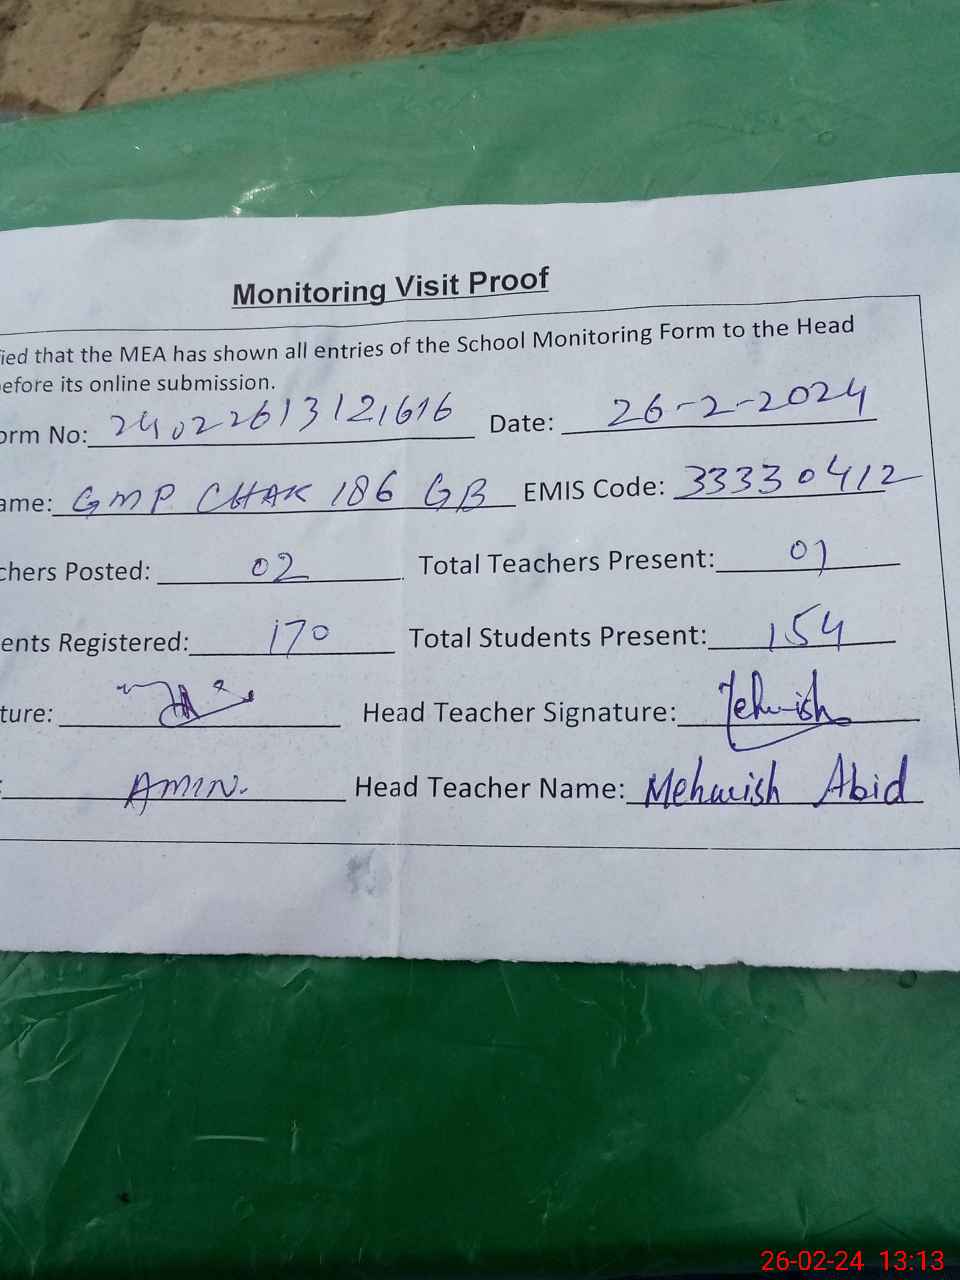 Monitoring Visit Proof
fied that the MEA has shown all entries of the School Monitoring Form to the Head
efore its online submission.
orm No: 24022613121616 Date: 26-2-2024
ame: GMP CHAK 186 GB EMIS Code: 33330412
chers Posted: 02 Total Teachers Present: 01
ents Registered: 170 Total Students Present: 154
ture: Head Teacher Signature: Mehwish
: AMIN. Head Teacher Name: Mehwish Abid
26-02-24 13:13